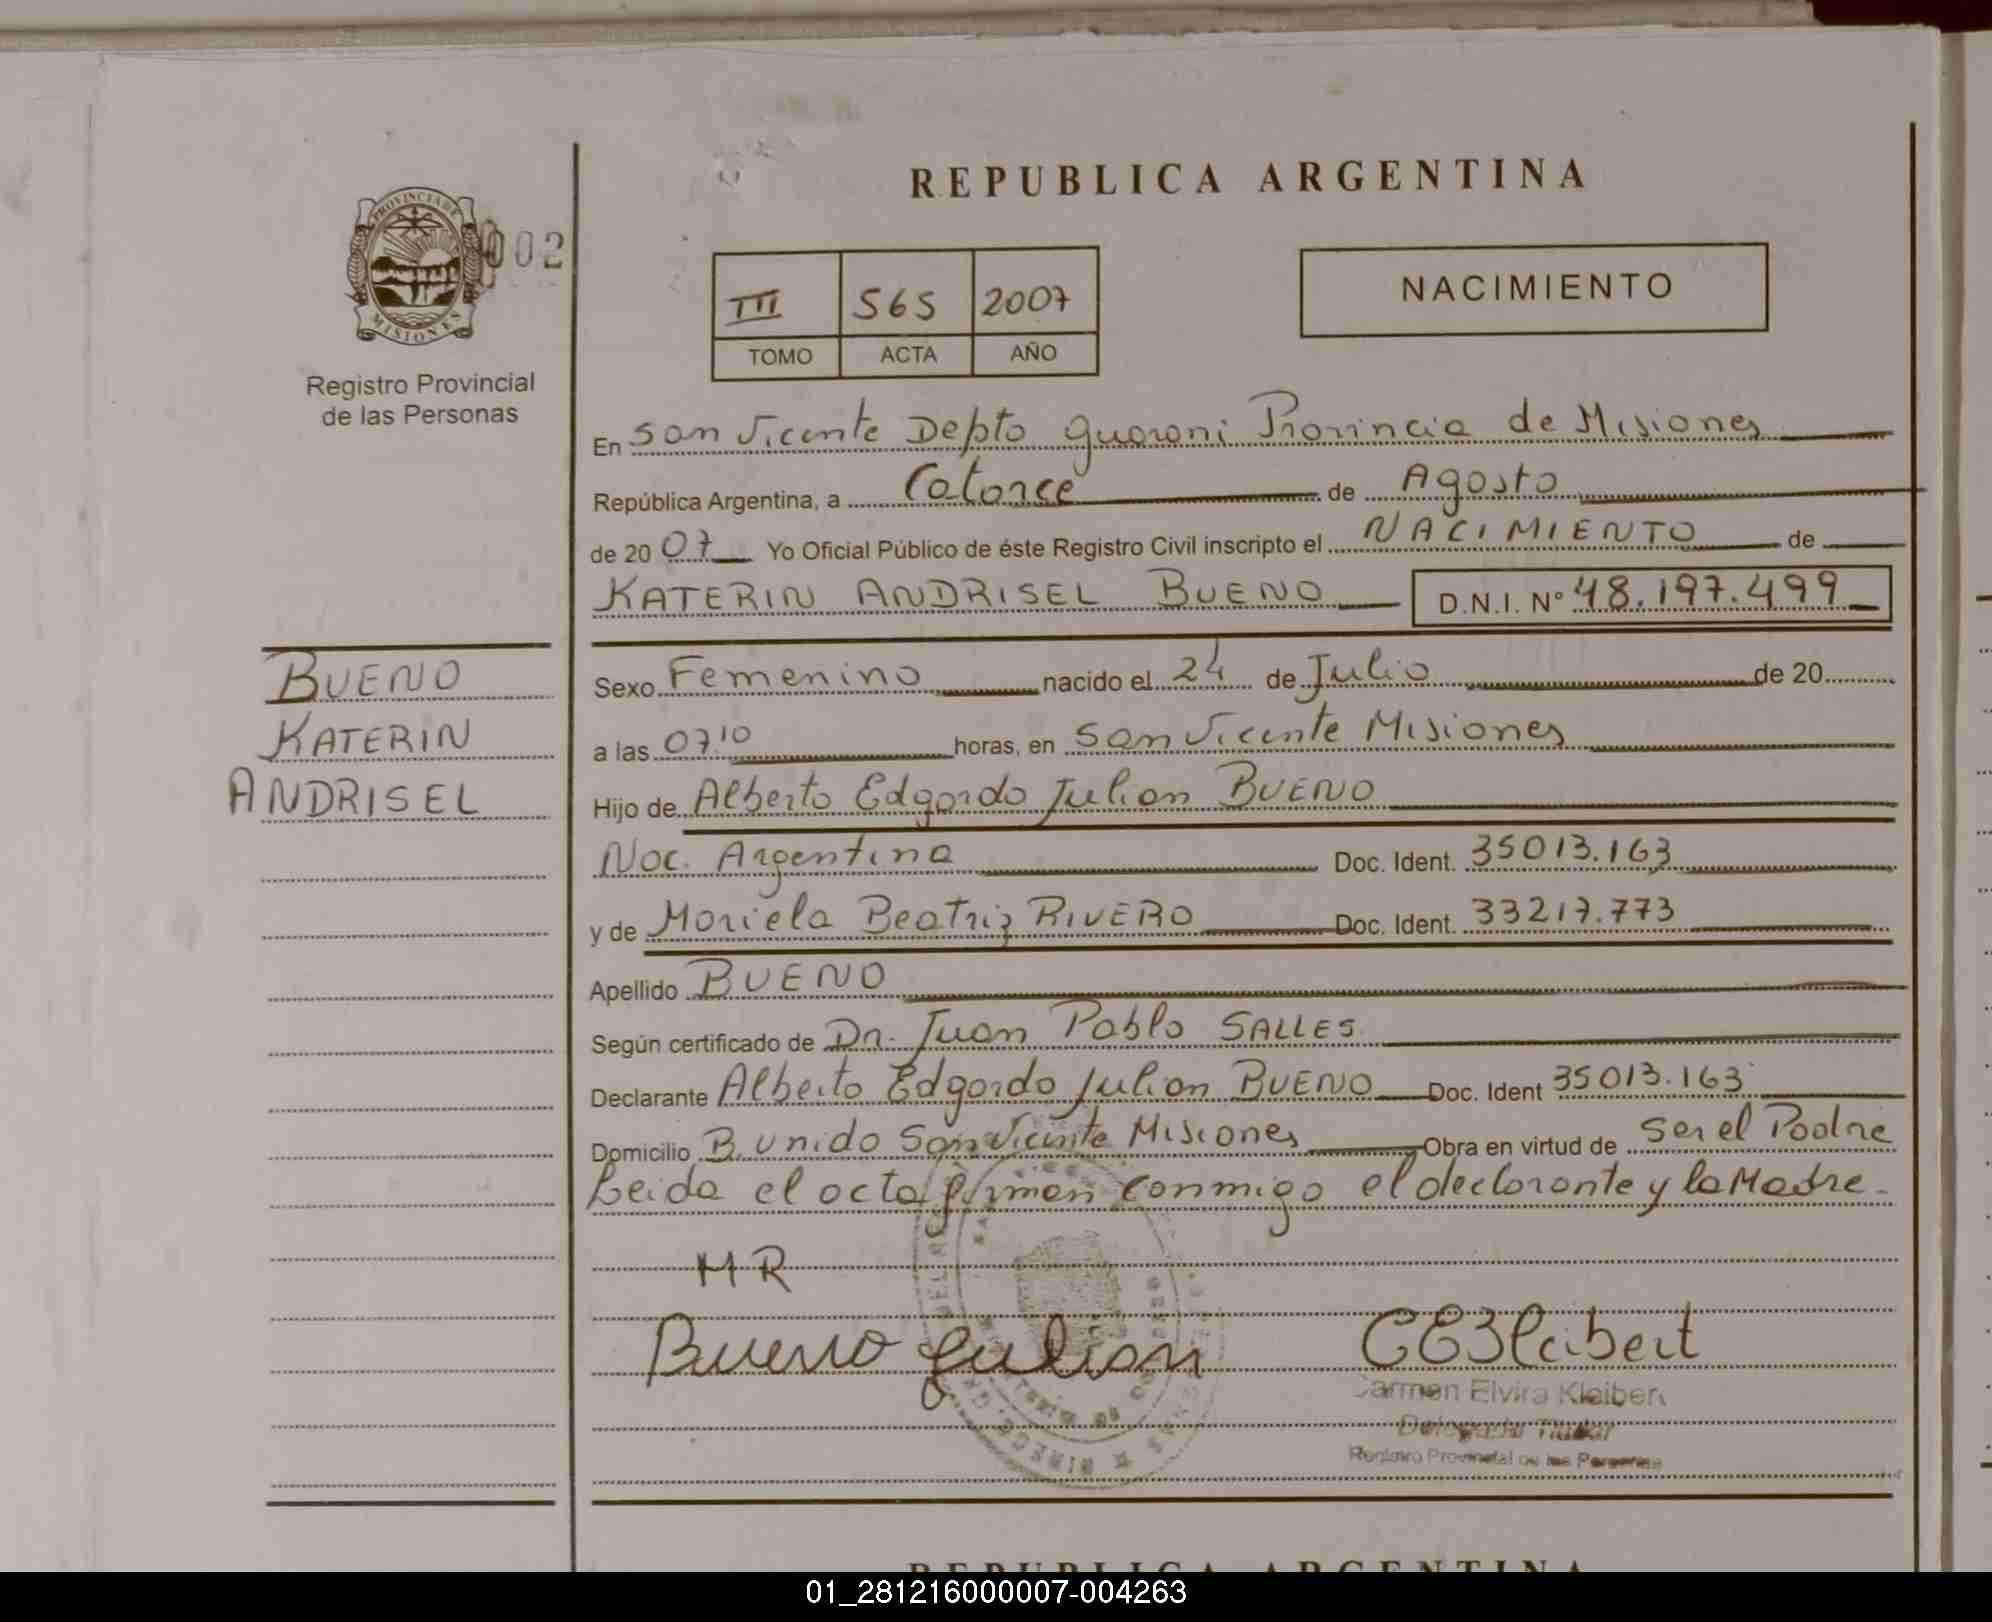 REPUBLICA ARGENTINA
PROVINCIA DE
MISIONES
002
Registro Provincial
de las Personas
III 565 2007
TOMO ACTA AÑO
NACIMIENTO
En San Vicente Depto Guarani Provincia de Misiones
República Argentina, a Catorce de Agosto
de 20 07 Yo Oficial Público de éste Registro Civil inscripto el NACIMIENTO de
KATERIN ANDRISEL BUENO D.N.I. Nº 48.197.499
BUENO
KATERIN
ANDRISEL
Sexo Femenino nacido el 24 de Julio de 20
a las 07,10 horas, en San Vicente Misiones
Hijo de Alberto Edgardo Julian BUENO
Nac. Argentina Doc. Ident. 35013.163
y de Mariela Beatriz RIVERO Doc. Ident. 33217.773
Apellido BUENO
Según certificado de Dr. Juan Pablo SALLES
Declarante Alberto Edgardo Julian BUENO Doc. Ident 35013.163
Domicilio B. Unido San Vicente Misiones Obra en virtud de Ser el Padre
Leida el acta firman conmigo el declarante y la Madre
MR
Bueno Julian
Carmen Elvira Kleibert
Delegada Titular
Registro Provincial de las Personas
REPUBLICA ARGENTINA
01_281216000007-004263